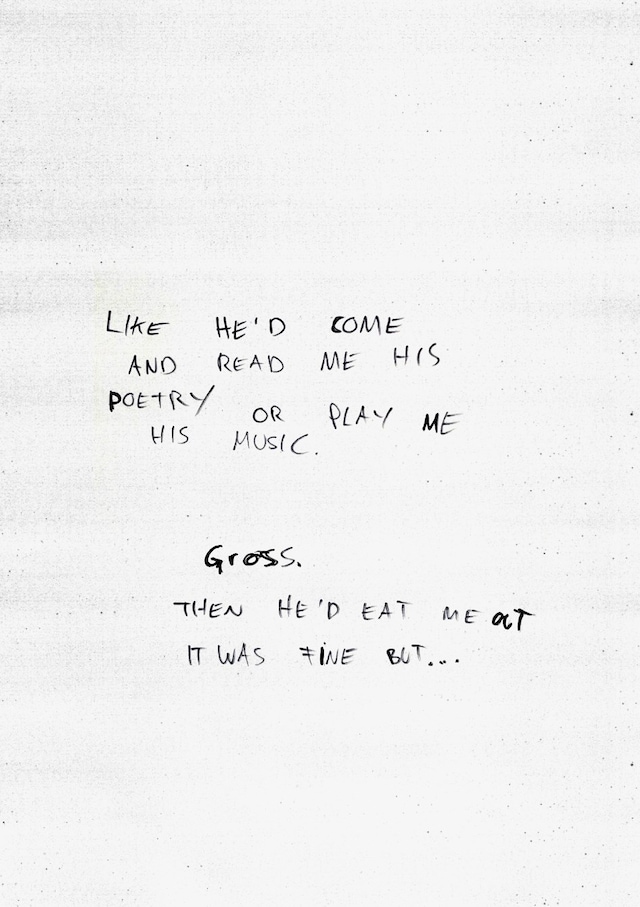 LIKE HE'D COME
AND READ ME HIS
POETRY OR PLAY ME
HIS MUSIC.
Gross.
THEN HE'D EAT ME OUT
IT WAS FINE BUT...